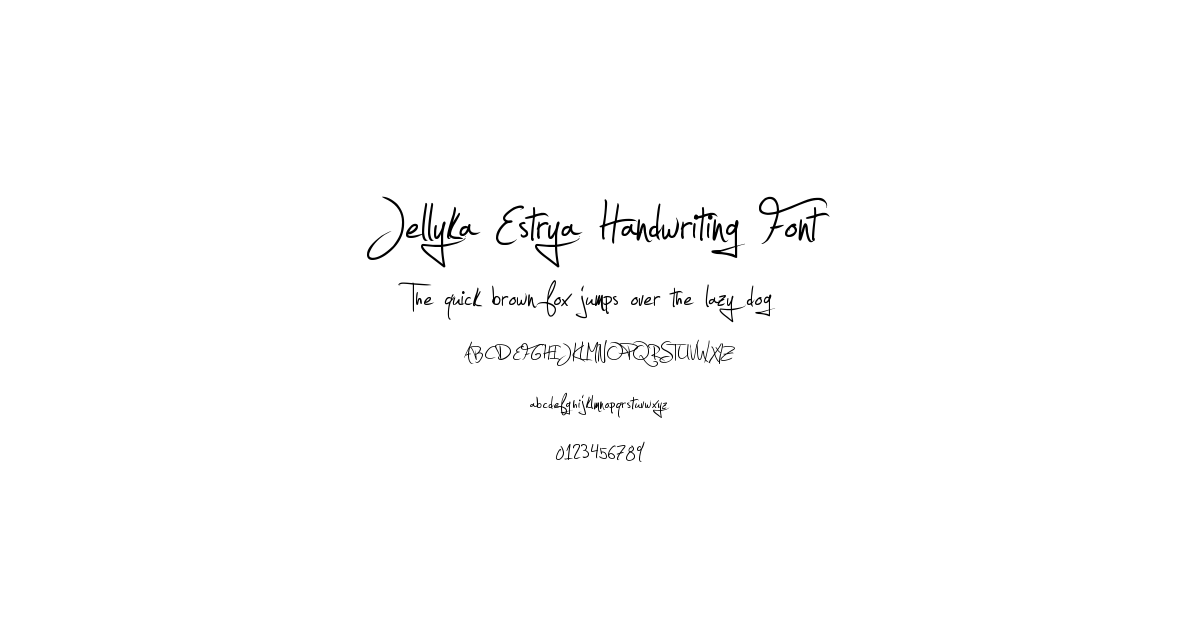 Jellyka Estrya Handwriting Font
The quick brown fox jumps over the lazy dog
ABCDEFGHIJKLMNOPQRSTUVWXYZ
abcdefghijklmnopqrstuvwxyz
0123456789